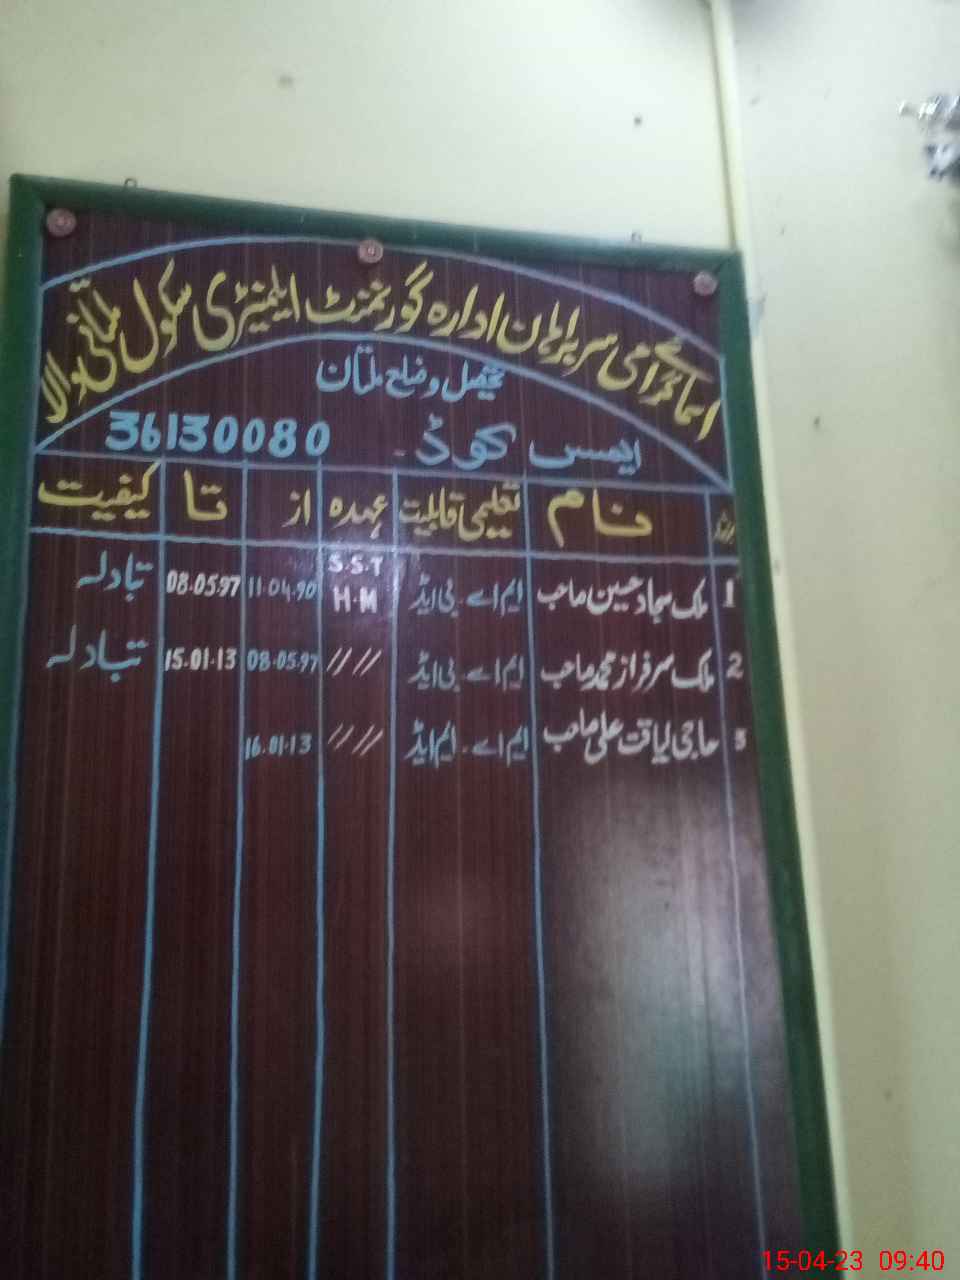 اسمائے گرامی سربراہان ادارہ گورنمنٹ ایلیمنٹری سکول ملتانی والا
تحصیل و ضلع ملتان
ایمس کوڈ - 36130080
نام تعلیمی قابلیت عہدہ از تا کیفیت
1 ملک سجاد حسین صاحب ایم اے - بی ایڈ S.S.T H.M 11.04.90 08.05.97 تبادلہ
2 ملک سرفراز محمد صاحب ایم اے - بی ایڈ // // 08.05.97 15.01.13 تبادلہ
3 حاجی لیاقت علی صاحب ایم اے - ایم ایڈ // // 16.01.13
15-04-23 09:40